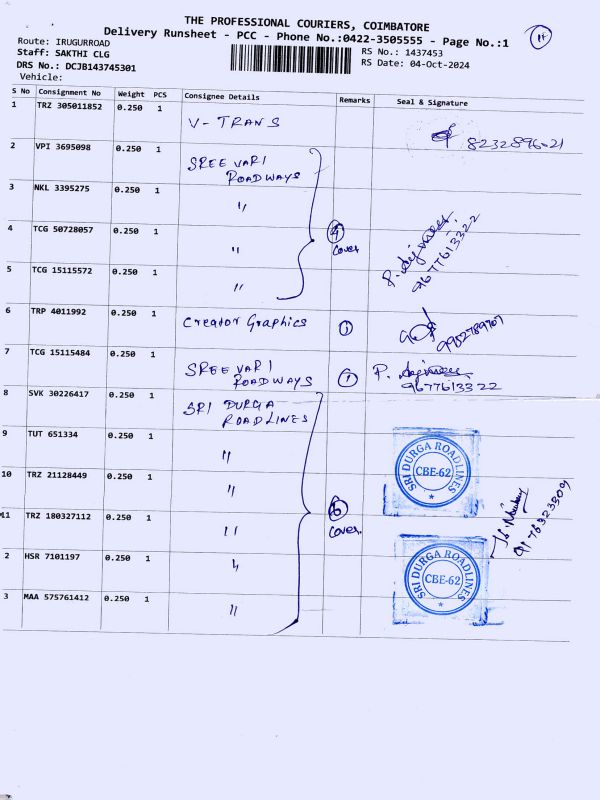 THE PROFESSIONAL COURIERS, COIMBATORE
Delivery Runsheet - PCC - Phone No.:0422-3505555 - Page No.:1
Route: IRUGURROAD
Staff: SAKTHI CLG
DRS No.: DCJB143745301
Vehicle:
RS No.: 1437453
RS Date: 04-Oct-2024
S No Consignment No Weight PCS Consignee Details Remarks Seal & Signature
1 TRZ 305011852 0.250 1 V-TRANS 8232896021
2 VPI 3695098 0.250 1 SREE VARI ROADWAYS
3 NKL 3395275 0.250 1 〃
4 TCG 50728057 0.250 1 〃 4 cover 9677613322
5 TCG 15115572 0.250 1 〃
6 TRP 4011992 0.250 1 Creator Graphics 1 9952789707
7 TCG 15115484 0.250 1 SREE VARI ROADWAYS 1 9677613322
8 SVK 30226417 0.250 1 SRI DURGA ROADLINES
9 TUT 651334 0.250 1 〃
10 TRZ 21128449 0.250 1 〃
11 TRZ 180327112 0.250 1 〃 6 cover
2 HSR 7101197 0.250 1 〃
3 MAA 575761412 0.250 1 〃
SRI DURGA ROADLINES
CBE-62
SRI DURGA ROADLINES
CBE-62